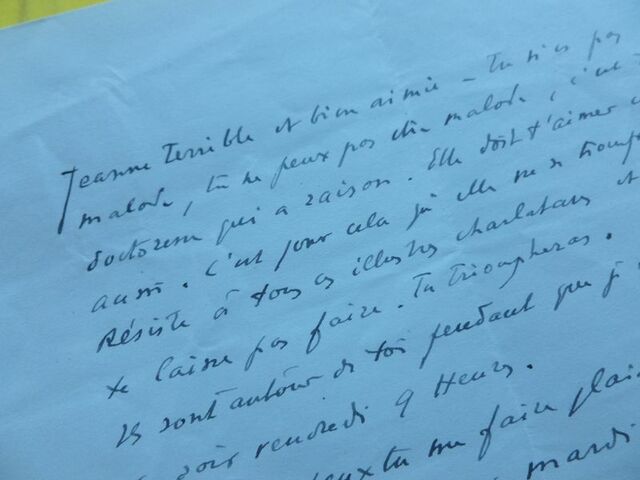 Jeanne Terrible et bien aimée – Tu n'es pas
malade, tu ne peux pas être malade, c'est
doctoresse qui a raison. Elle doit t'aimer
aussi. C'est pour cela qu'elle ne se trompe
Résiste à tous ces illustres charlatans et
te laisse pas faire. Tu triompheras.
Ils sont autour de toi pendant que j'
soir vendredi 9 Heures.
tu me faire plai
mardi